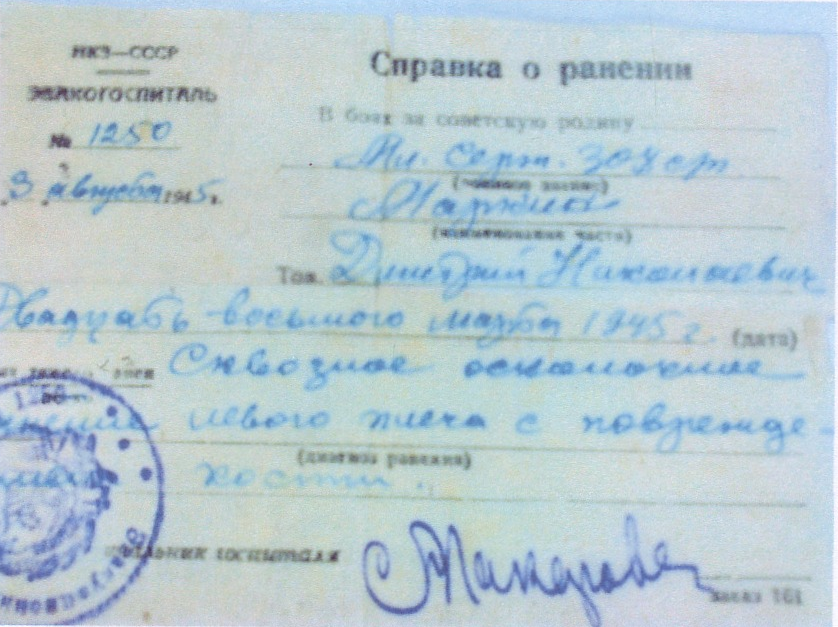 НКЗ—СССР
ЭВАКОГОСПИТАЛЬ
№ 1250
3 августа 1945 г.
Справка о ранении
В боях за советскую родину
Мл. серж.
(воинское звание)
(наименование части)
Тов. Дмитрий Николаевич
Двадцать восьмого марта 1945 г. (дата)
Сквозное осколочное
левого плеча с поврежде-
(диагноз ранения)
кости.
госпиталя
заказ 161
1250